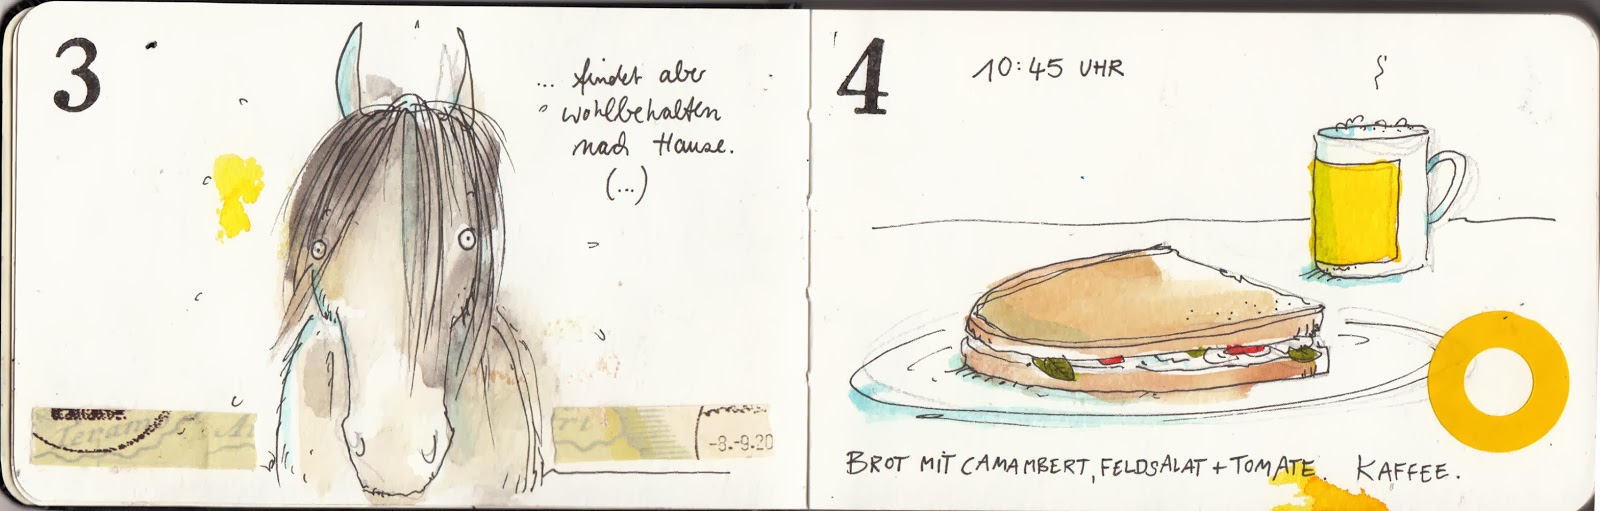 3
... findet aber
wohlbehalten
nach Hause.
(...)
Teram
-8.-9.20
4
10:45 UHR
BROT MIT CAMAMBERT, FELDSALAT + TOMATE. KAFFEE.